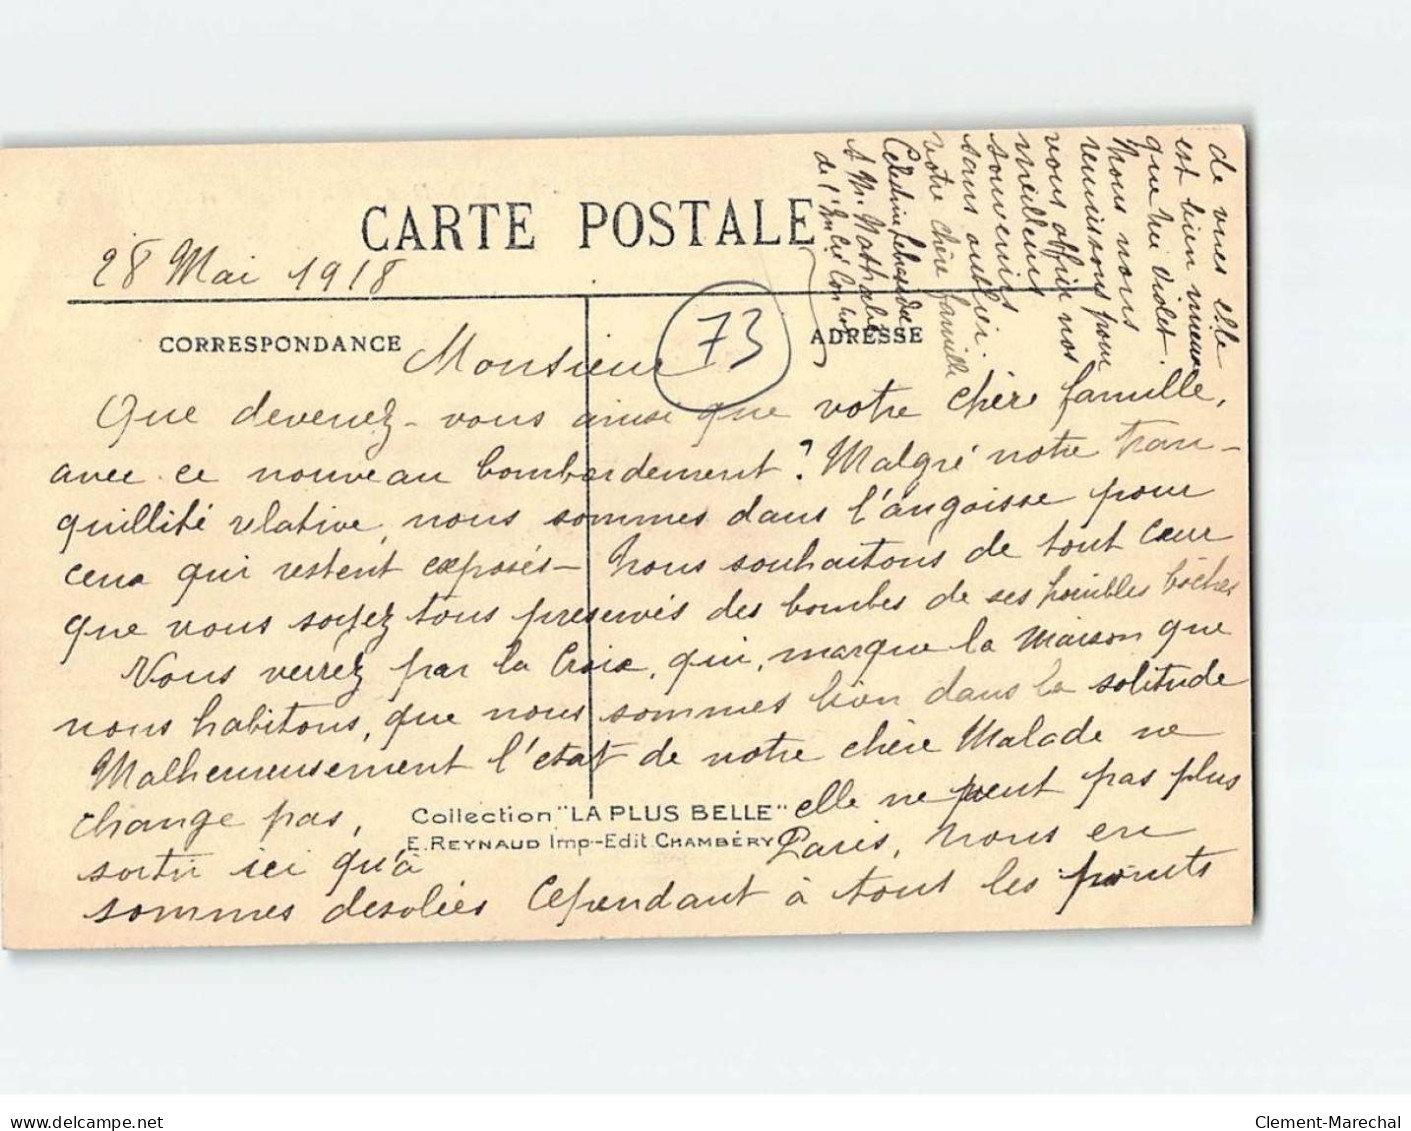 CARTE POSTALE
28 Mai 1918
CORRESPONDANCE
ADRESSE
73
Monsieur
Que devenez-vous ainsi que votre chère famille,
avec ce nouveau bombardement ? Malgré notre tran-
quillité relative, nous sommes dans l'angoisse pour
ceux qui restent exposés - Nous souhaitons de tout cœur
que vous soyez tous preservés des bombes de ses horribles bôches
Vous verrez par la Croix, qui, marque la maison que
nous habitons, que nous sommes bien dans la solitude
Malheureusement l'état de notre chère Malade ne
change pas, elle ne peut pas plus
sortir ici qu'à Paris, nous en
sommes desolées Cependant à tout les points
Collection "LA PLUS BELLE"
E. REYNAUD Imp-Edit. CHAMBÉRY
de vues elle
est bien mieux
que rue Violet.
Nous nous
reunissons pour
vous offrir nos
meilleurs
souvenirs
sans oublier
votre chère famille
Celestine
& M.
de l'
Clement-Marechal
www.delcampe.net